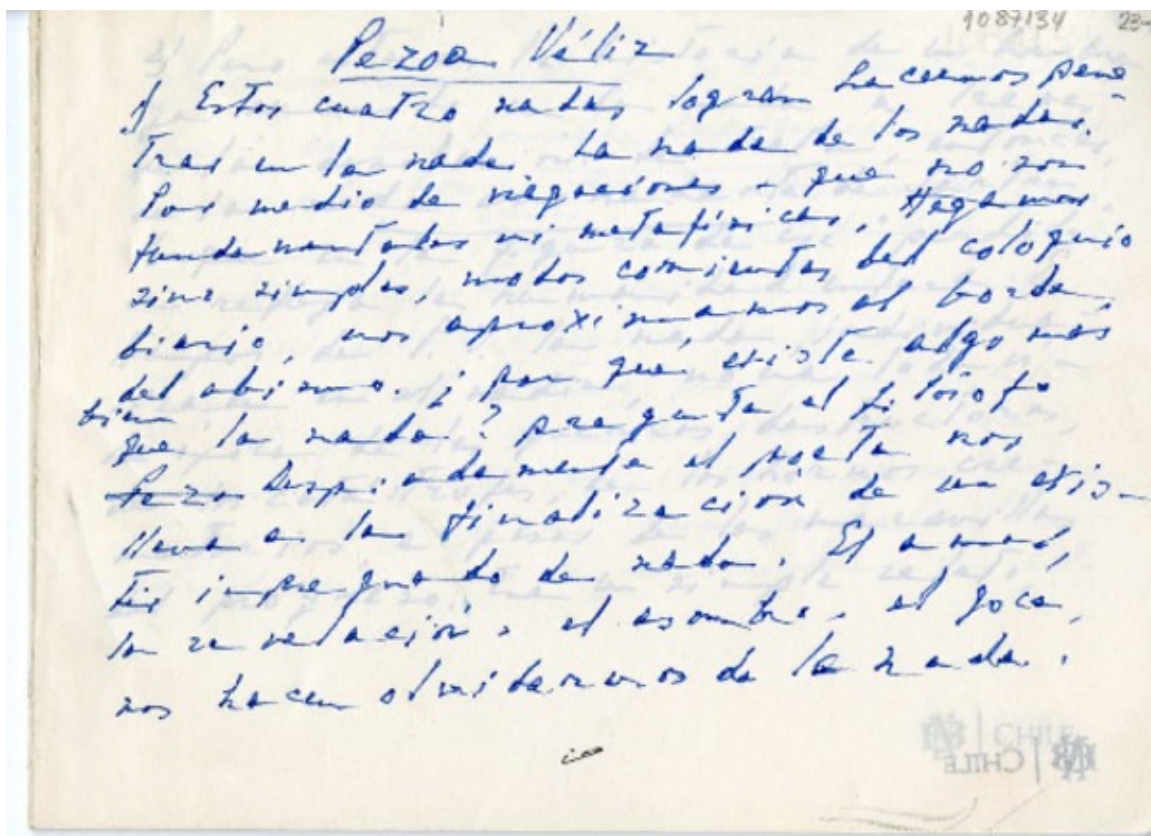 1087134 23-
Pezoa Véliz
1) Estos cuatro nadas logran hacernos pene-
trar en la nada. La nada de los nadas.
Por medio de negaciones - que no son
fundamentales ni metafísicas, Hagamos
sino simples, modos corrientes del coloquio
diario, nos aproximamos al borde
del abismo. ¿por qué existe algo más
bien
que la nada? pregunta el filósofo
Pezo Despiadamente el poeta nos
lleva a la finalización de un exis-
tir impregnado de nada. El amor,
la revelación, el asombro, el goce,
nos hacen olvidarnos de la nada.
CHILE
CHILE